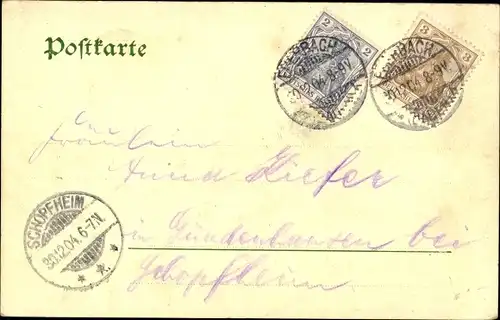 Postkarte
2
3
EBERBACH
.04. 8-9V.
EBERBACH
30.12.04. 8-9V.
Fräulein
Anna Kiefer
in Gündenhausen bei
Schopfheim
SCHOPFHEIM
30.12.04. 6-7N.